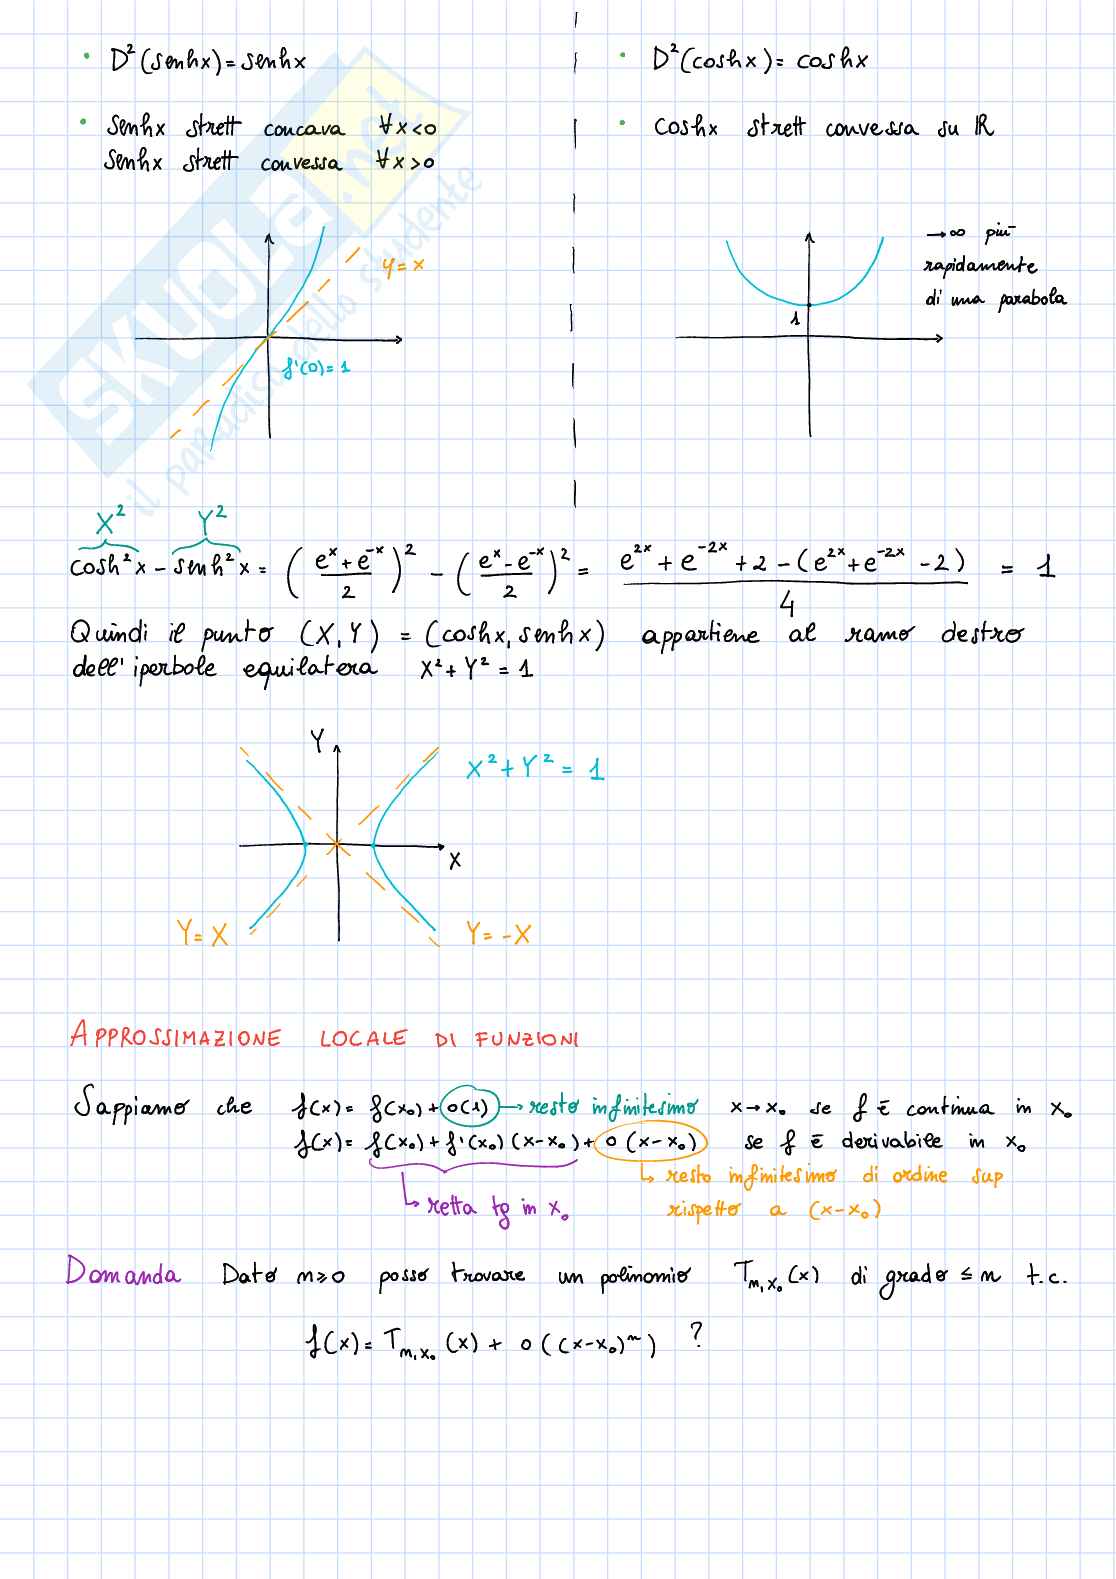 • D²(senhx) = senhx
• senhx strett concava ∀x<0
senhx strett convessa ∀x>0
y=x
f'(0)=1
• D²(coshx) = coshx
• coshx strett convessa su ℝ
→∞ più
rapidamente
di una parabola
1
X² Y²
cosh²x - senh²x = ((eˣ+e⁻ˣ)/2)² - ((eˣ-e⁻ˣ)/2)² = (e²ˣ + e⁻²ˣ + 2 - (e²ˣ + e⁻²ˣ - 2))/4 = 1
Quindi il punto (X,Y) = (coshx, senhx) appartiene al ramo destro
dell'iperbole equilatera X² + Y² = 1
Y
X² + Y² = 1
X
Y = X
Y = -X
APPROSSIMAZIONE LOCALE DI FUNZIONI
Sappiamo che f(x) = f(x₀) + o(1) → resto infinitesimo x→x₀ se f è continua in x₀
f(x) = f(x₀) + f'(x₀)(x-x₀) + o(x-x₀) se f è derivabile in x₀
↳ retta tg in x₀
↳ resto infinitesimo di ordine sup
rispetto a (x-x₀)
Domanda Dato n≥0 posso trovare un polinomio Tₙ,ₓ₀(x) di grado ≤ n t.c.
f(x) = Tₙ,ₓ₀(x) + o((x-x₀)ⁿ) ?
SKUOLA.net
il paradiso dello studente